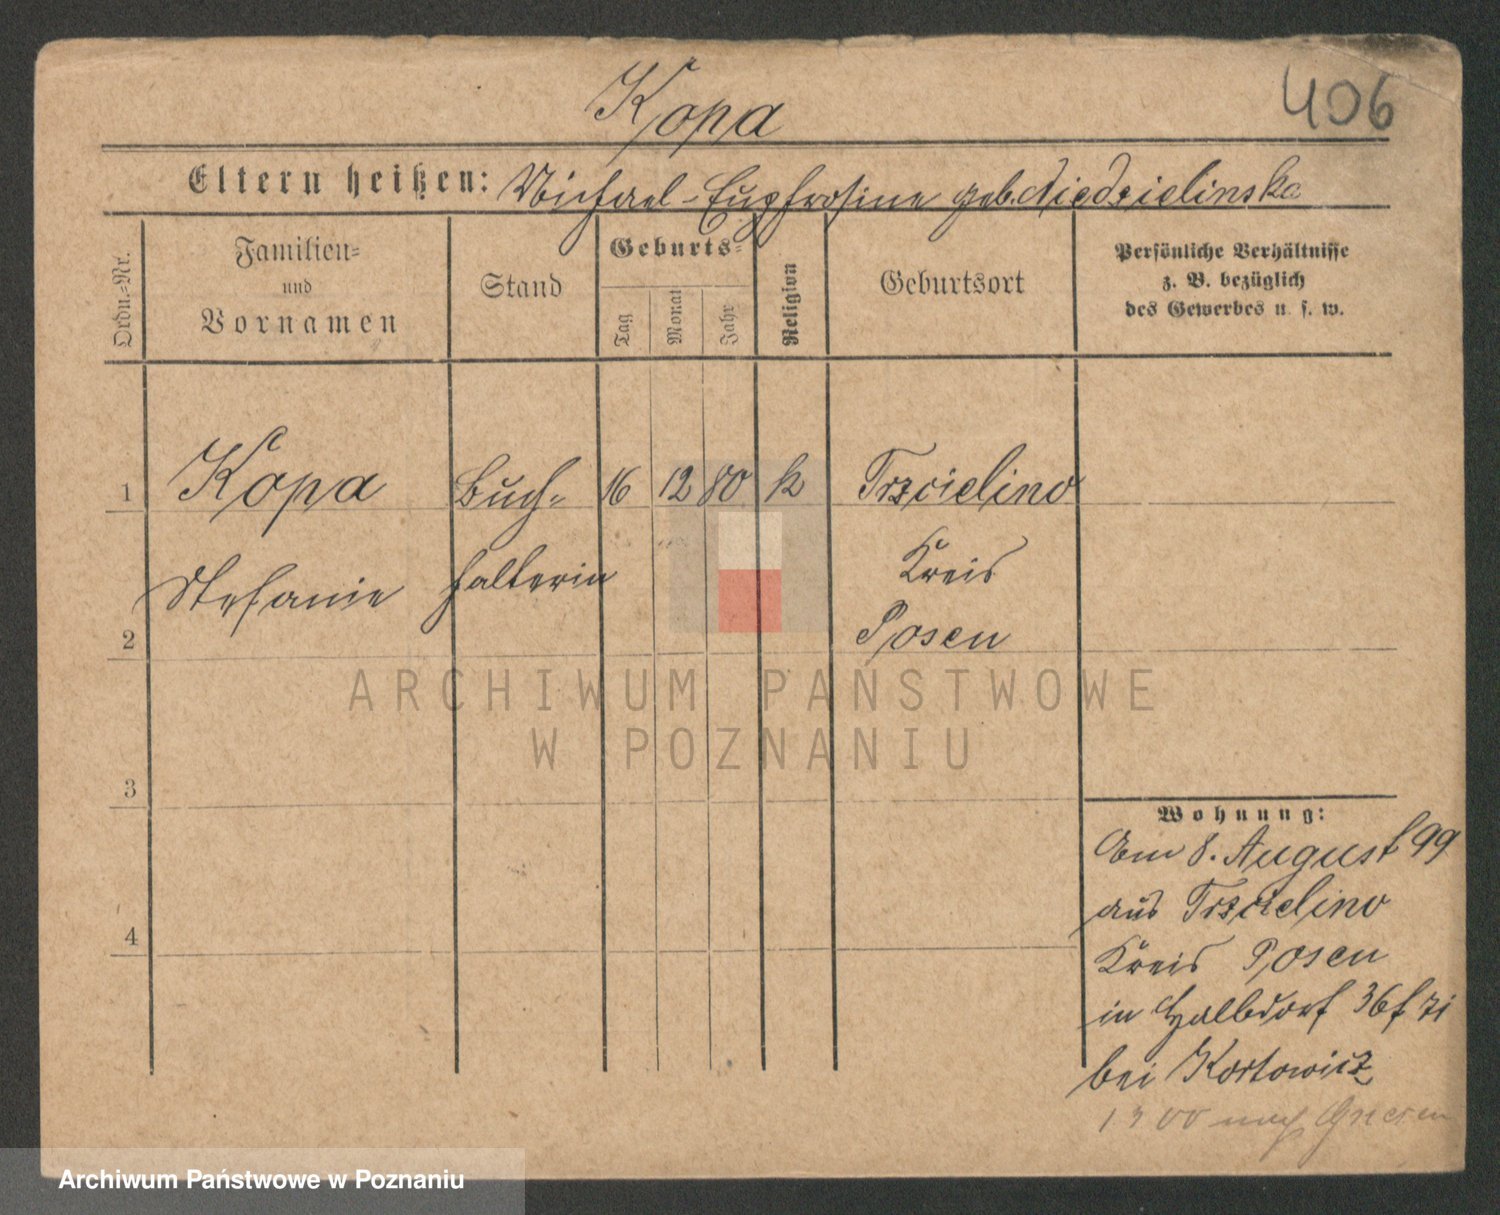 Kopa
406
Eltern heißen: Michael - Euphrosine geb. Niedzielinska
Ordn.-Nr.
Familien- und Vornamen
Stand
Geburts-
Tag
Monat
Jahr
Religion
Geburtsort
Persönliche Verhältnisse
z. B. bezüglich
des Gewerbes u. s. w.
1 Kopa Buch- 16 12 80 k Trzcielino
Stefanie halterin Kreis
2 Posen
3
4
Wohnung:
Am 8. August 99
aus Trzcielino
Kreis Posen
in Halbdorf 36
bei Kortowicz
1900 nach Gnesen
ARCHIWUM PAŃSTWOWE
W POZNANIU
Archiwum Państwowe w Poznaniu